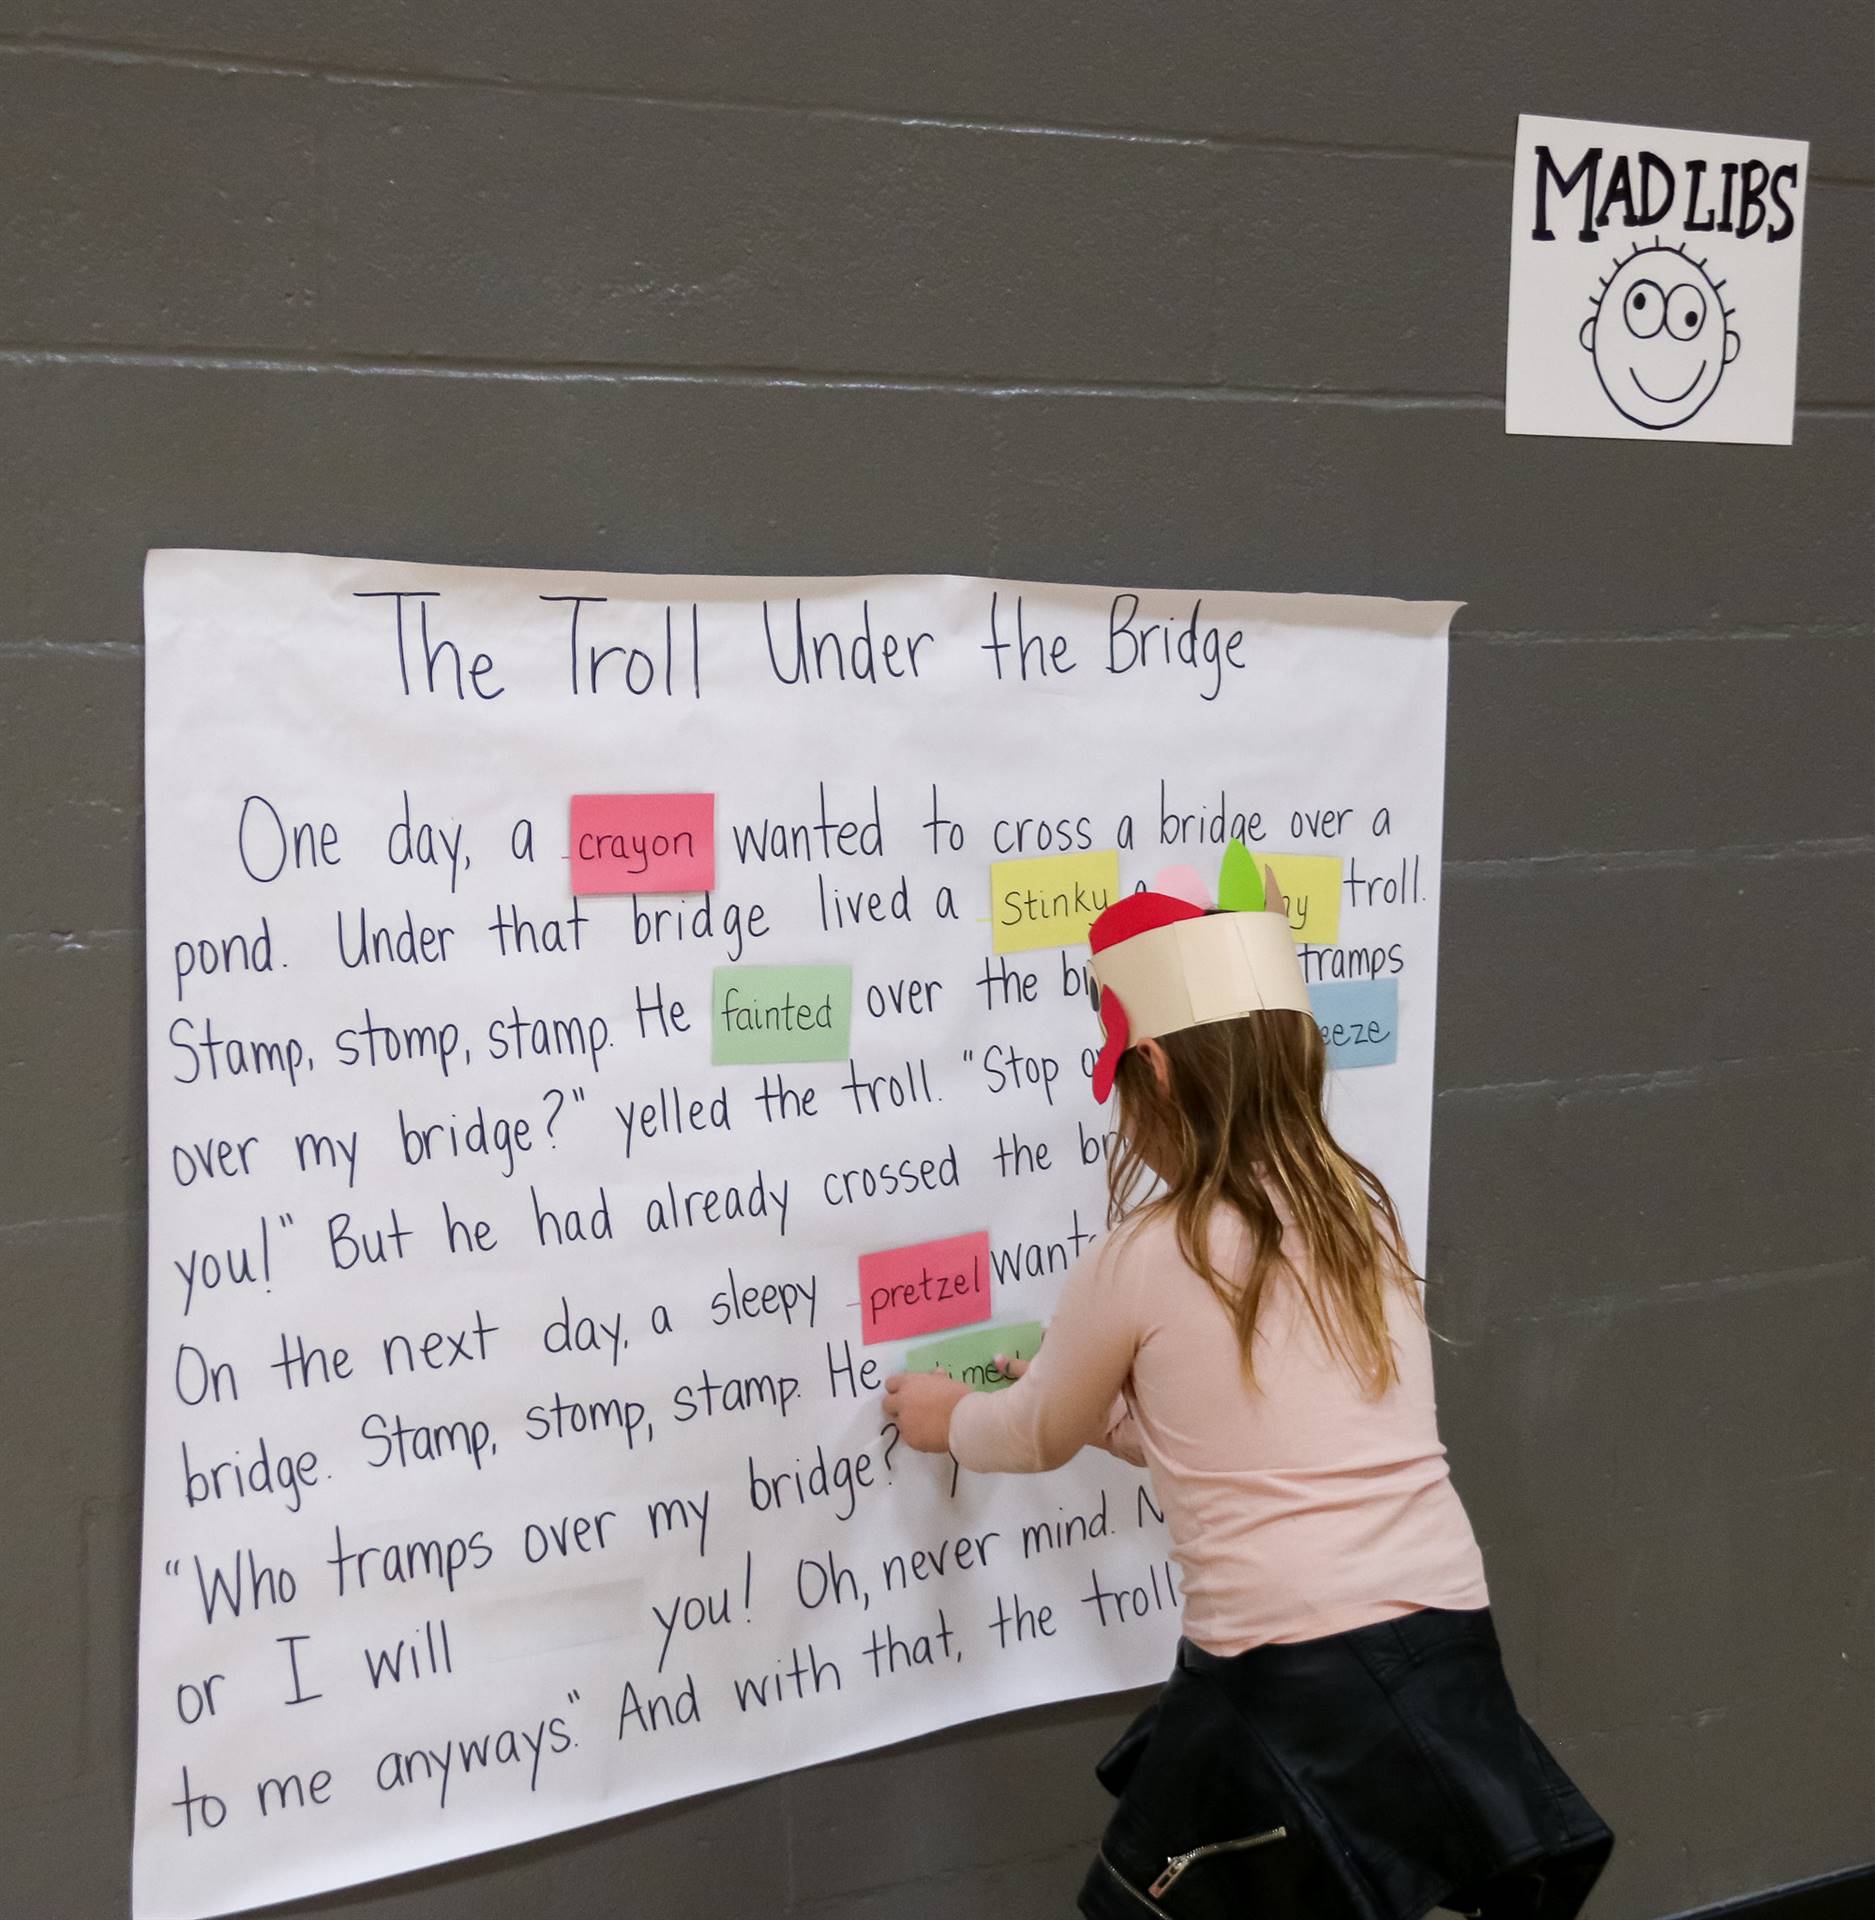 MAD LIBS
The Troll Under the Bridge
One day, a crayon wanted to cross a bridge over a
pond. Under that bridge lived a Stinky troll.
Stamp, stomp, stamp. He fainted over the tramps
over my bridge?" yelled the troll. "Stop
you!" But he had already crossed the
On the next day, a sleepy pretzel
bridge. Stamp, stomp, stamp. He
"Who tramps over my bridge?
or I will you! Oh, never mind.
to me anyways." And with that, the troll